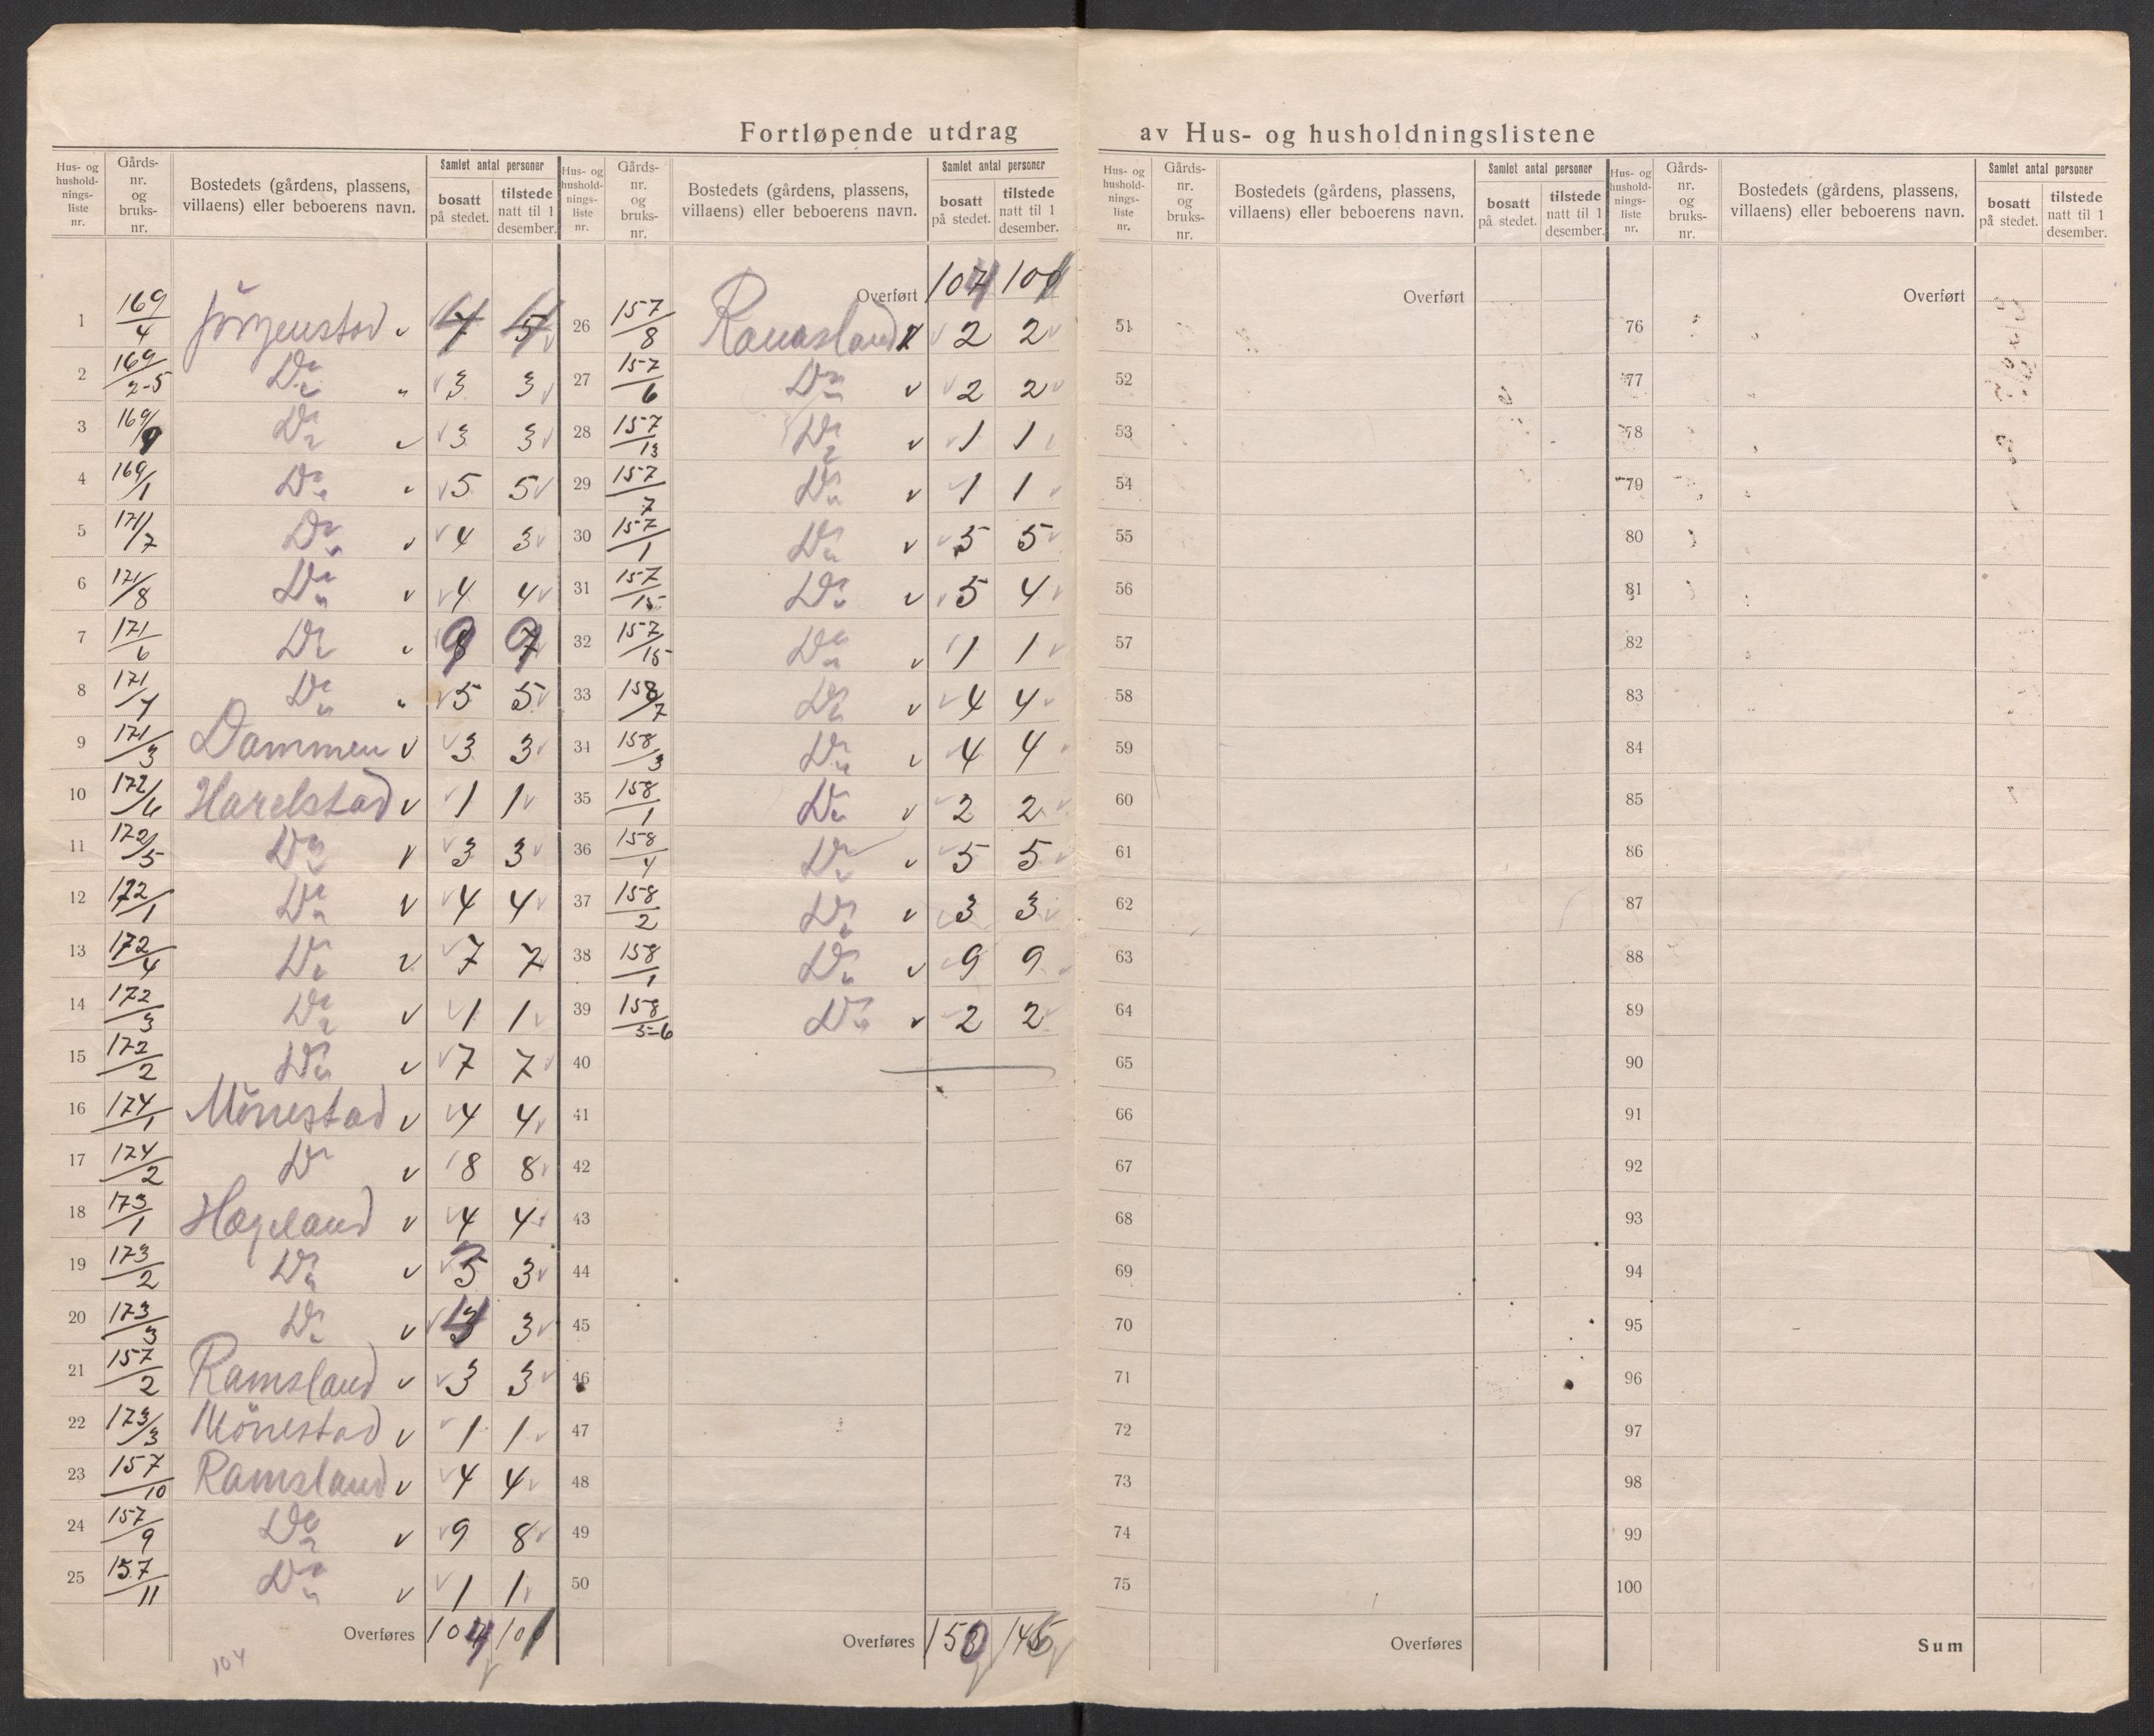 Fortløpende utdrag av Hus- og husholdningslistene
Hus- og hushold- nings- liste nr. | Gårds- nr. og bruks- nr. | Bostedets (gårdens, plassens, villaens) eller beboerens navn. | Samlet antal personer | bosatt på stedet. | tilstede natt til 1 desember.
1 169/4 Jörgenstad v
2 169/2-5 Do " 3 3
3 169/9 Do v 3 3
4 169/1 Do " 5 5
5 171/7 Do v 4 3
6 171/8 Do v 4 4
7 171/6 Do v 9 9
8 171/4 Do " 5 5
9 171/3 Dammen v 3 3
10 172/6 Harelstad v 1 1
11 172/5 Do v 3 3
12 172/1 Do v 4 4
13 172/4 Do v 7 7
14 172/3 Do v 1 1
15 172/2 Do v 7 7
16 174/1 Mönestad v 4 4
17 174/2 Do v 8 8
18 173/1 Hægeland v 4 4
19 173/2 Do v 3
20 173/3 Do v 4 3
21 157/2 Ramsland v 3 3
22 173/3 Mönestad v 1 1
23 157/10 Ramsland v 4 4
24 157/9 Do v 9 8
25 157/11 Do v 1 1
Overføres 104 101
104
Hus- og hushold- nings- liste nr. | Gårds- nr. og bruks- nr. | Bostedets (gårdens, plassens, villaens) eller beboerens navn. | Samlet antal personer | bosatt på stedet. | tilstede natt til 1 desember.
Overført 104 101
26 157/8 Ramsland v 2 2
27 157/6 Do v 2 2
28 157/13 Do v 1 1
29 157/7 Do v 1 1
30 157/1 Do v 5 5
31 157/15 Do v 5 4
32 157/15 Do v 1 1
33 158/7 Do v 4 4
34 158/3 Do v 4 4
35 158/1 Do v 2 2
36 158/4 Do v 5 5
37 158/2 Do v 3 3
38 158/1 Do v 9 9
39 158/5-6 Do v 2 2
40
41
42
43
44
45
46
47
48
49
50
Overføres 150 145
Hus- og hushold- nings- liste nr. | Gårds- nr. og bruks- nr. | Bostedets (gårdens, plassens, villaens) eller beboerens navn. | Samlet antal personer | bosatt på stedet. | tilstede natt til 1 desember.
Overført
51
52
53
54
55
56
57
58
59
60
61
62
63
64
65
66
67
68
69
70
71
72
73
74
75
Overføres
Hus- og hushold- nings- liste nr. | Gårds- nr. og bruks- nr. | Bostedets (gårdens, plassens, villaens) eller beboerens navn. | Samlet antal personer | bosatt på stedet. | tilstede natt til 1 desember.
Overført
76
77
78
79
80
81
82
83
84
85
86
87
88
89
90
91
92
93
94
95
96
97
98
99
100
Sum